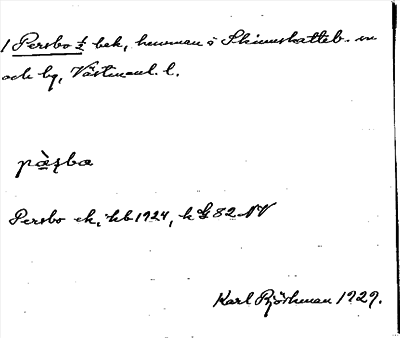 1 Persbo ½ bek, hemman i Skinnskatteb. sn
och bg, Västmanl. l.
pàʂba
Persbo ek, hb 1924, k G 82 NV
Karl Björkman 1929.